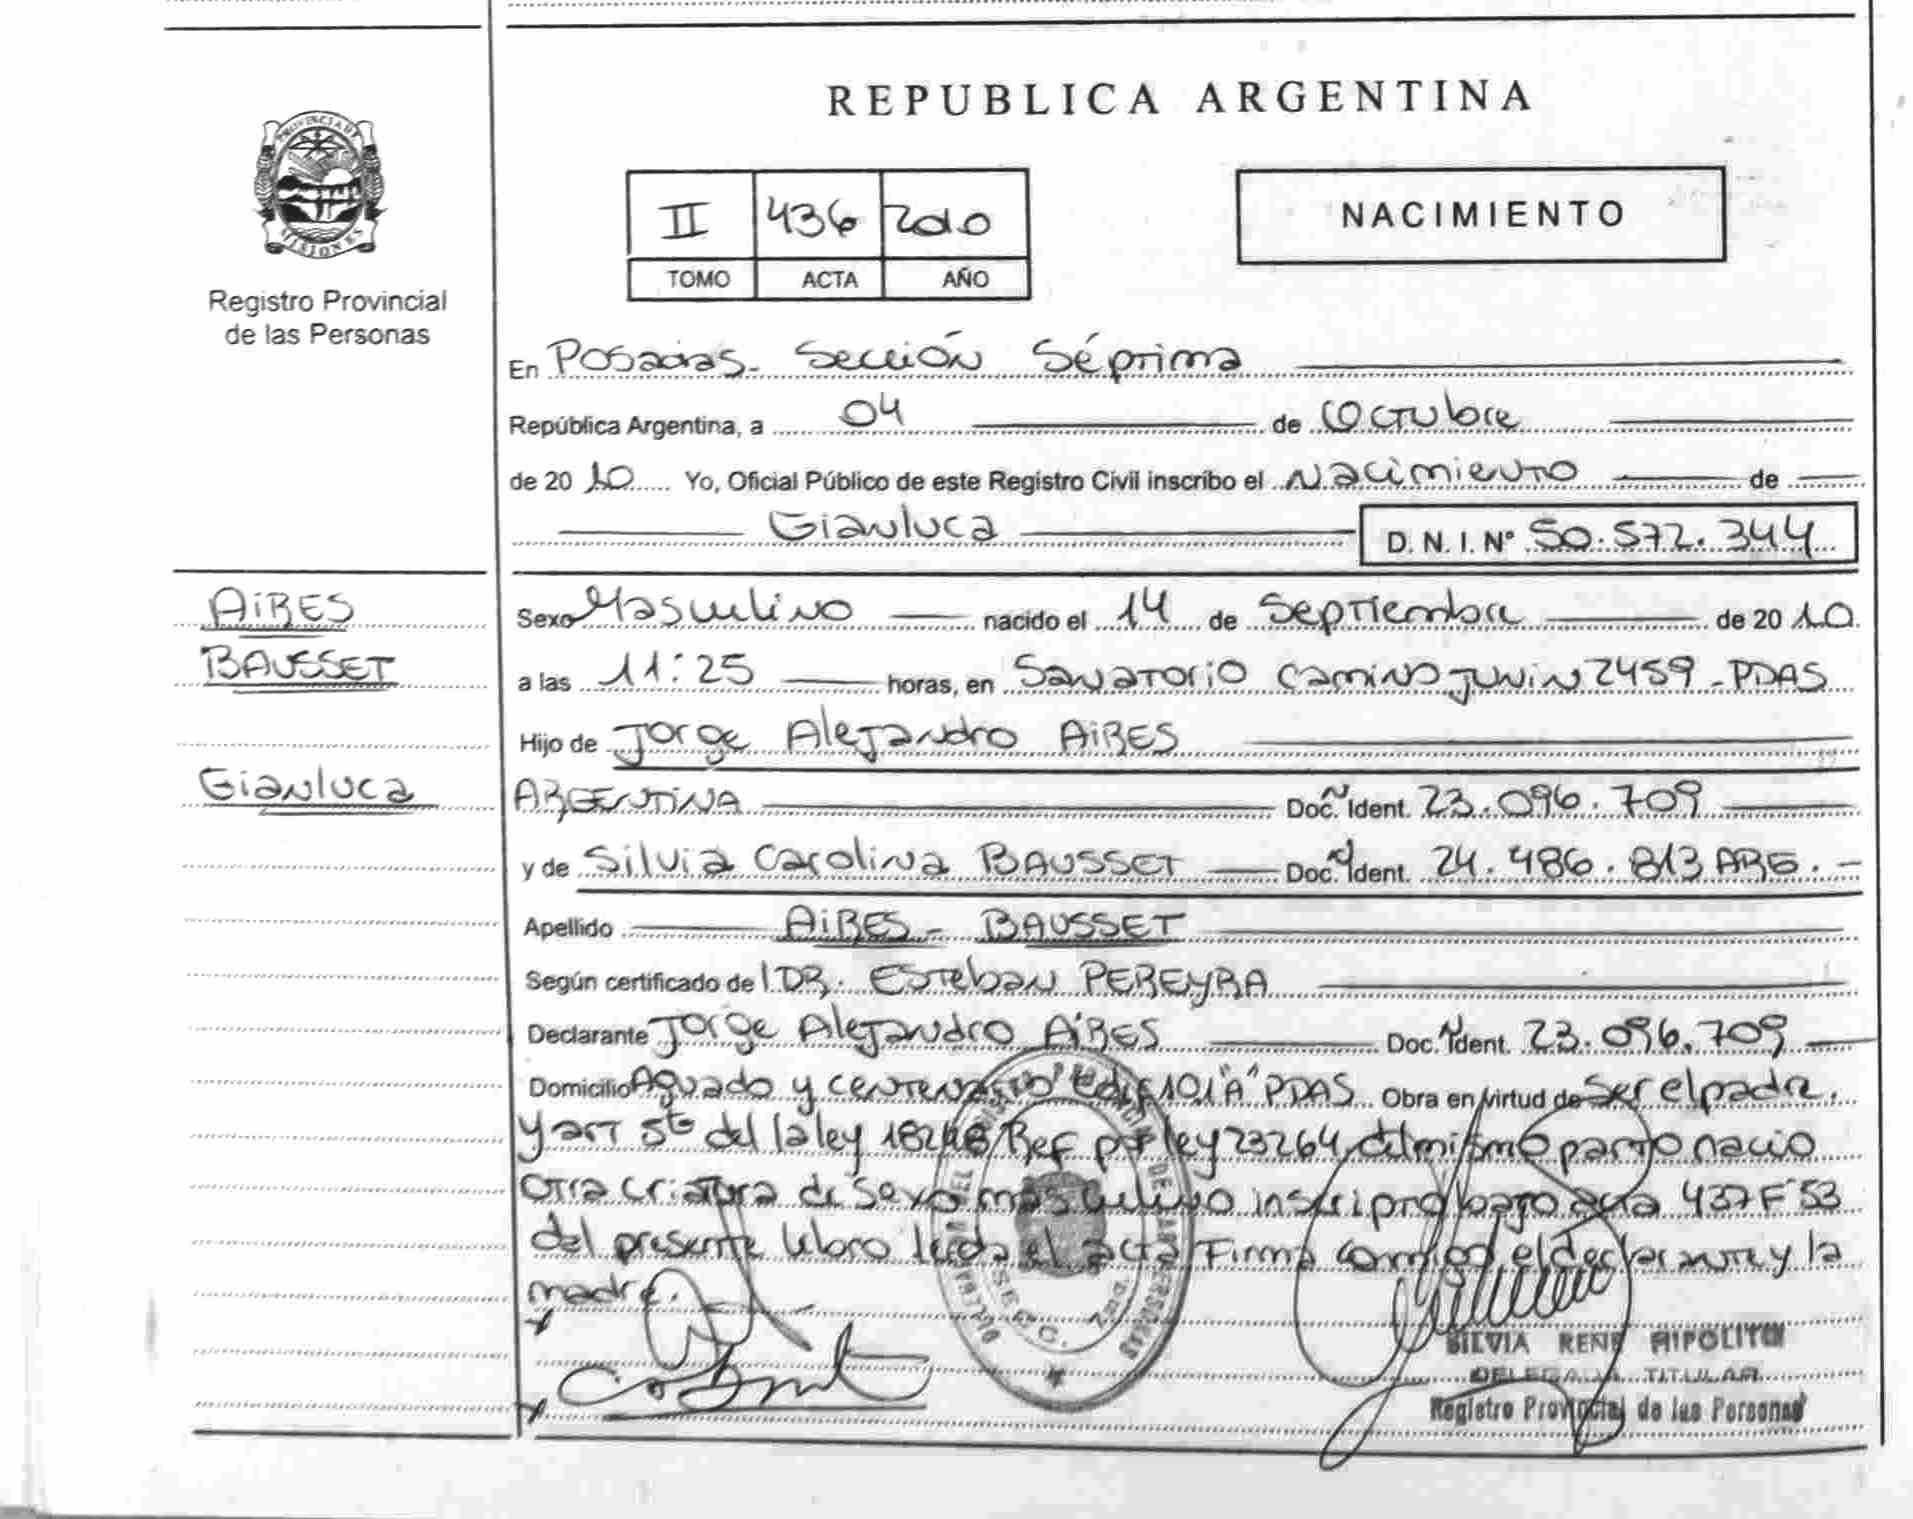 REPUBLICA ARGENTINA
PROVINCIA DE
MISIONES
Registro Provincial
de las Personas
II 436 2010
TOMO ACTA AÑO
NACIMIENTO
En Posadas - Sección Séptima
República Argentina, a 04 de Octubre
de 20 10 Yo, Oficial Público de este Registro Civil inscribo el Nacimiento de
Gianluca D. N. I. Nº 50.572.344
AiRES
BAUSSET
Gianluca
Sexo Masculino nacido el 14 de Septiembre de 20 10
a las 11:25 horas, en Sanatorio Camino Junin 2459 - PDAS
Hijo de Jorge Alejandro AiRES
ARGENTINA Doc. N Ident. 23.096.709
y de Silvia Carolina BAUSSET Doc. N Ident. 24.486.813 ARG. -
Apellido AiRES - BAUSSET
Según certificado de DR. Esteban PEREYRA
Declarante Jorge Alejandro AiRES Doc. N Ident. 23.096.709
Domicilio Aguado y Centenario Edif 101 "A" PDAS Obra en virtud de ser el padre.
y art 5to del la ley 18248 Ref por ley 23264 del mismo parto nacio
otra criatura de sexo masculino inscripto bajo acta 437 Fº 53
del presente libro leida el acta Firma conmigo el declarante y la
madre.
SILVIA RENE HIPOLITO
DELEGADA TITULAR
Registro Provincial de las Personas